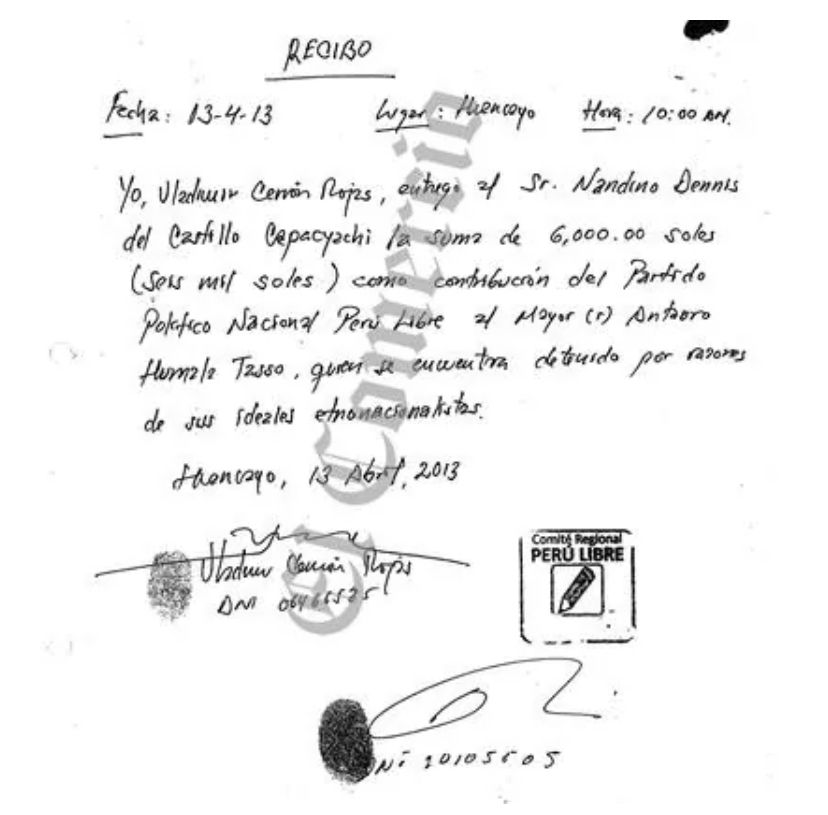 RECIBO
Fecha: 13-4-13 Lugar: Huancayo Hora: 10:00 AM.
Yo, Vladimir Cerrón Rojas, entrego al Sr. Nandino Dennis
del Castillo Capacyachi la suma de 6,000.00 soles
(Seis mil soles) como contribución del Partido
Político Nacional Perú Libre al Mayor (r) Antauro
Humala Tasso, quien se encuentra detenido por razones
de sus ideales etnonacionalistas.
Huancayo, 13 Abril, 2013
El Comercio
Vladimir Cerrón Rojas
DNI
Comité Regional
PERÚ LIBRE